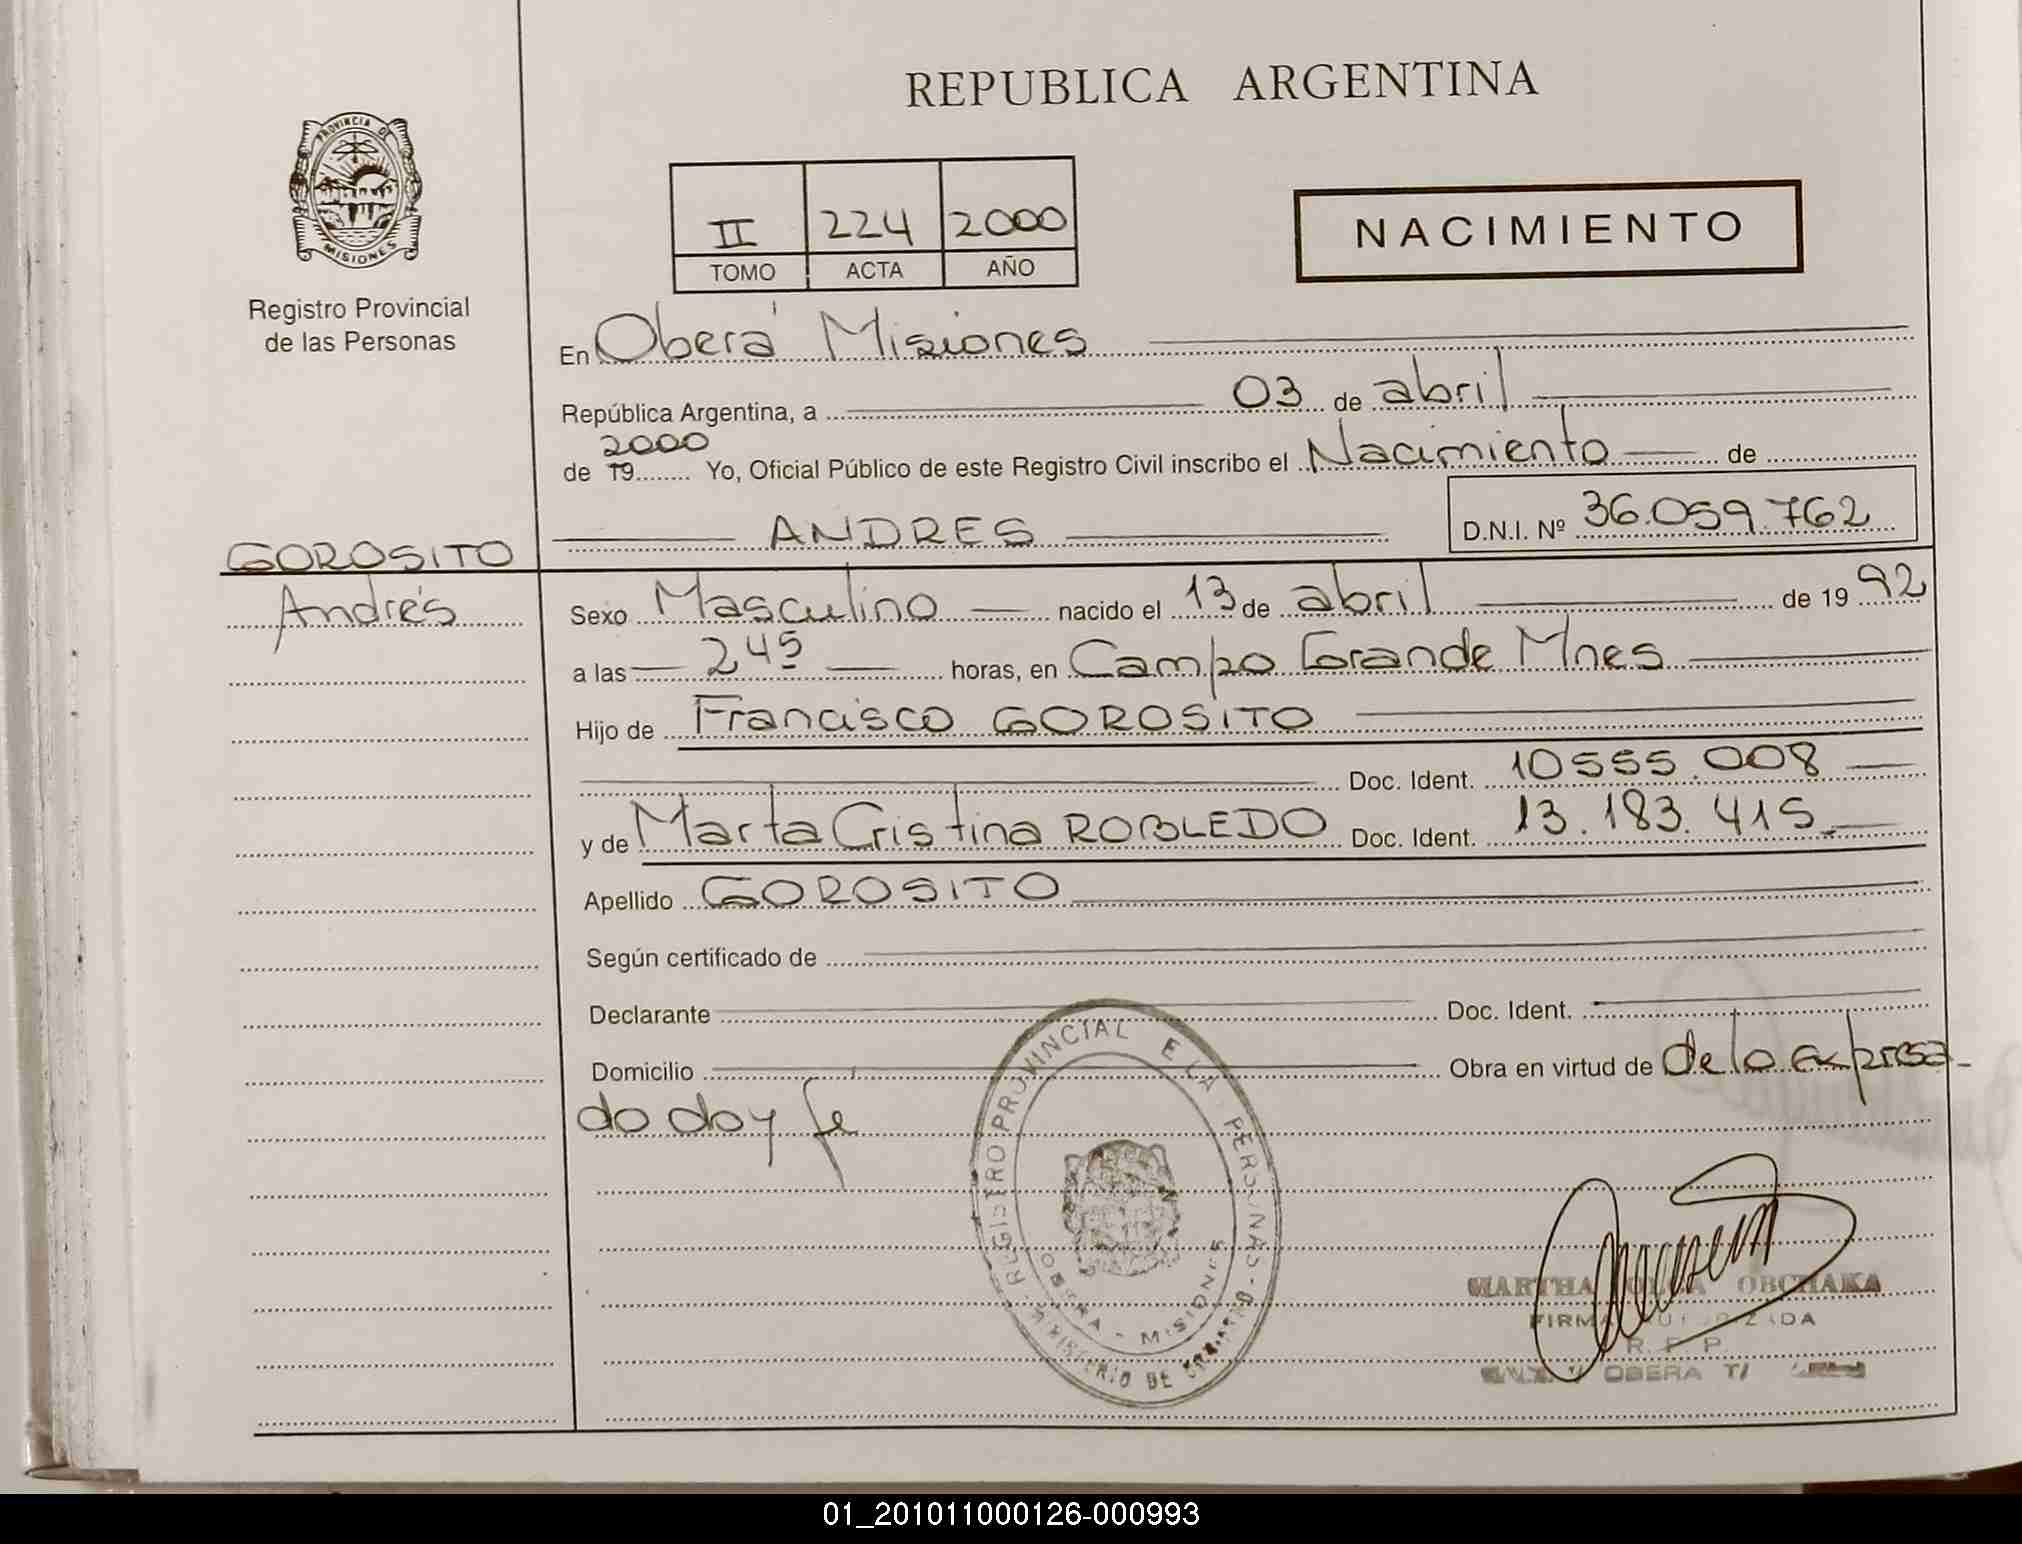 REPUBLICA ARGENTINA
PROVINCIA DE
MISIONES
Registro Provincial
de las Personas
II 224 2000
TOMO ACTA AÑO
NACIMIENTO
En Oberá Misiones
República Argentina, a 03 de abril
2000
de 19 Yo, Oficial Público de este Registro Civil inscribo el Nacimiento de
ANDRES D.N.I. Nº 36.059.762
GOROSITO
Andrés
Sexo Masculino nacido el 13 de abril de 1992
a las 245 horas, en Campo Grande Mnes
Hijo de Francisco GOROSITO
Doc. Ident. 10555.008
y de Marta Cristina ROBLEDO Doc. Ident. 13.183.415
Apellido GOROSITO
Según certificado de
Declarante Doc. Ident.
Domicilio Obra en virtud de de lo expresa-
do doy fe
REGISTRO PROVINCIAL E LA PERSONAS
OBERA - MISIONES
MINISTERIO DE
MARTHA OLGA OBCHAKA
FIRMA AUTORIZADA
R. P. P.
OBERA T/
01_201011000126-000993